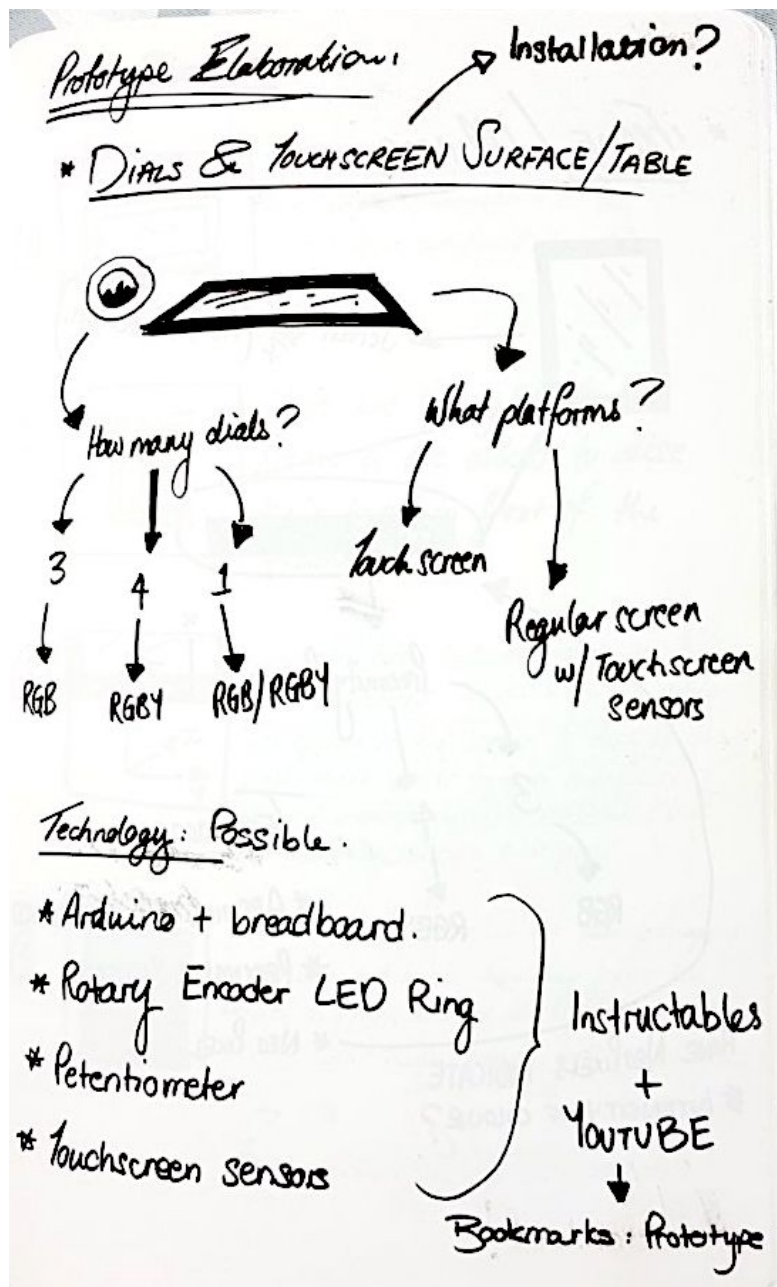 Prototype Elaboration.
Installation?
* DIALS & TOUCHSCREEN SURFACE/TABLE
How many dials?
What platforms?
3
4
1
Touch screen
RGB
RGBY
RGB/RGBY
Regular screen
w/ Touchscreen
sensors
Technology: Possible.
* Arduino + breadboard.
* Rotary Encoder LED Ring
* Petentiometer
* Touchscreen sensors
Instructables
+
YOUTUBE
Bookmarks: Prototype